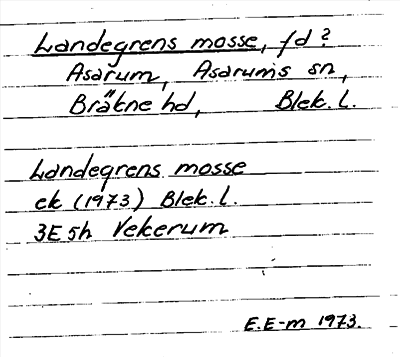 Landegrens mosse, fd?
Asarum, Asarums sn,
Bräkne hd, Blek. l.
Landegrens mosse
ek (1973) Blek. l.
3E 5h Vekerum
E.E-m 1973.